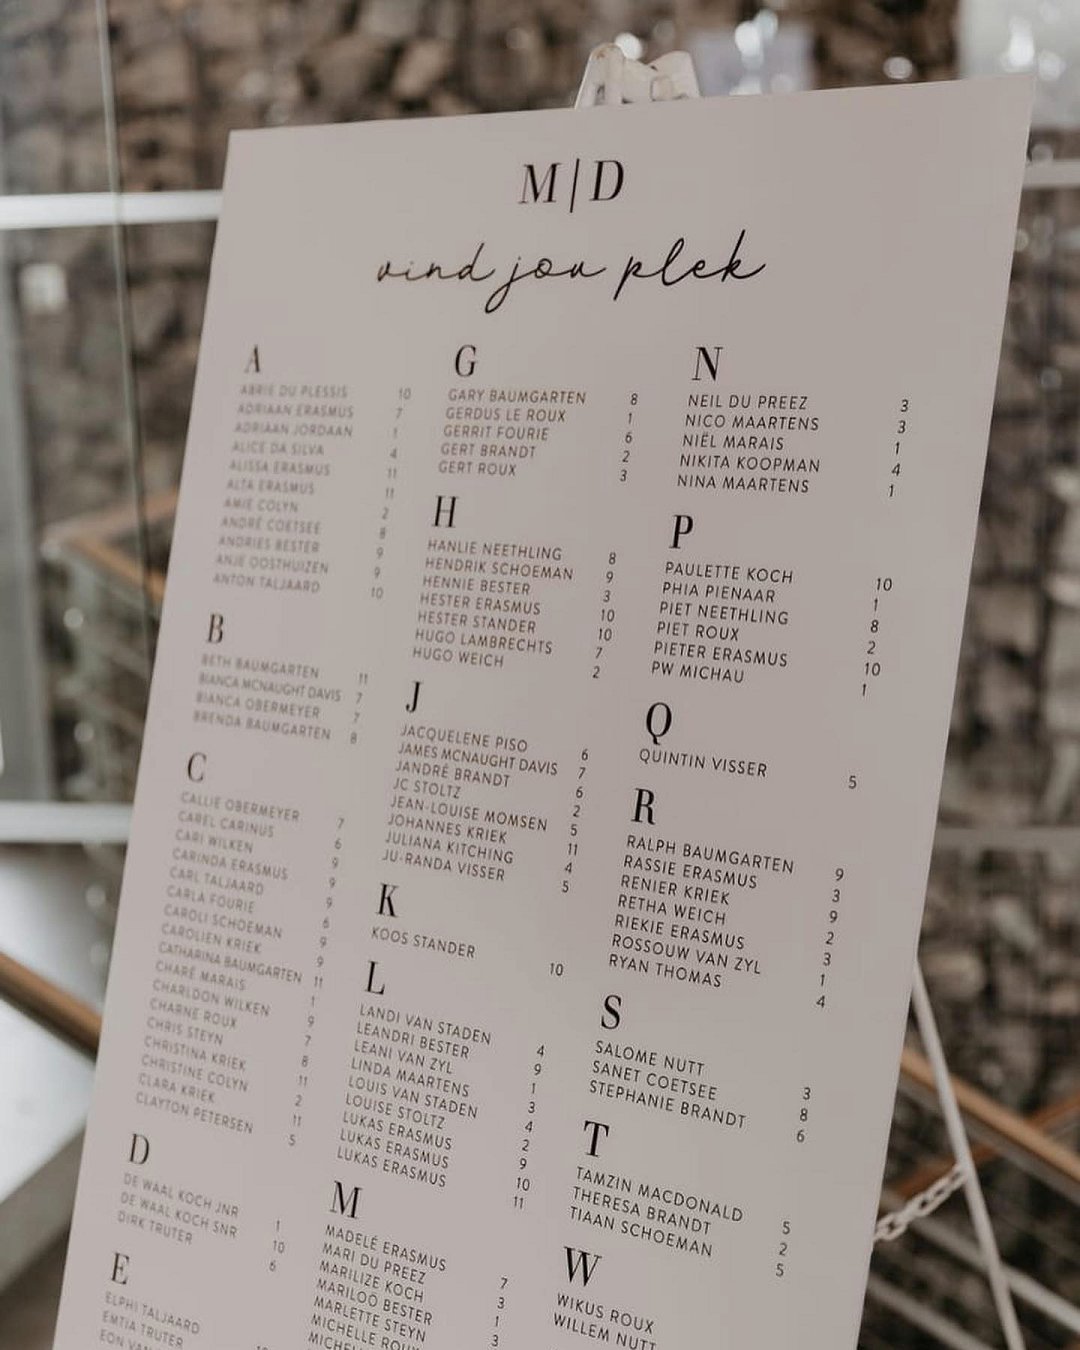 M|D
vind jou plek
A
ABRIE DU PLESSIS 10
ADRIAAN ERASMUS 7
ADRIAAN JORDAAN 1
ALICE DA SILVA 4
ALISSA ERASMUS 11
ALTA ERASMUS 11
AMIE COLYN 2
ANDRÉ COETSEE 8
ANDRIES BESTER 9
ANJE OOSTHUIZEN 9
ANTON TALJAARD 10
B
BETH BAUMGARTEN 11
BIANCA MCNAUGHT DAVIS 7
BIANCA OBERMEYER 7
BRENDA BAUMGARTEN 8
C
CALLIE OBERMEYER 7
CAREL CARINUS 6
CARI WILKEN 9
CARINDA ERASMUS 9
CARL TALJAARD 9
CARLA FOURIE 6
CAROLI SCHOEMAN 9
CAROLIEN KRIEK 9
CATHARINA BAUMGARTEN 11
CHARÉ MARAIS 1
CHARLDON WILKEN 9
CHARNE ROUX 7
CHRIS STEYN 8
CHRISTINA KRIEK 11
CHRISTINE COLYN 2
CLARA KRIEK 11
CLAYTON PETERSEN 5
D
DE WAAL KOCH JNR 1
DE WAAL KOCH SNR 10
DIRK TRUTER 6
E
ELPHI TALJAARD
EMTIA TRUTER
EON
G
GARY BAUMGARTEN 8
GERDUS LE ROUX 1
GERRIT FOURIE 6
GERT BRANDT 2
GERT ROUX 3
H
HANLIE NEETHLING 8
HENDRIK SCHOEMAN 9
HENNIE BESTER 3
HESTER ERASMUS 10
HESTER STANDER 10
HUGO LAMBRECHTS 7
HUGO WEICH 2
J
JACQUELENE PISO 6
JAMES MCNAUGHT DAVIS 7
JANDRÉ BRANDT 6
JC STOLTZ 2
JEAN-LOUISE MOMSEN 5
JOHANNES KRIEK 11
JULIANA KITCHING 4
JU-RANDA VISSER 5
K
KOOS STANDER 10
L
LANDI VAN STADEN 4
LEANDRI BESTER 9
LEANI VAN ZYL 1
LINDA MAARTENS 3
LOUIS VAN STADEN 4
LOUISE STOLTZ 2
LUKAS ERASMUS 9
LUKAS ERASMUS 10
LUKAS ERASMUS 11
M
MADELÉ ERASMUS 7
MARI DU PREEZ 3
MARILIZE KOCH 1
MARILOÖ BESTER 3
MARLETTE STEYN
MICHELLE ROUX
N
NEIL DU PREEZ 3
NICO MAARTENS 3
NIËL MARAIS 1
NIKITA KOOPMAN 4
NINA MAARTENS 1
P
PAULETTE KOCH 10
PHIA PIENAAR 1
PIET NEETHLING 8
PIET ROUX 2
PIETER ERASMUS 10
PW MICHAU 1
Q
QUINTIN VISSER 5
R
RALPH BAUMGARTEN 9
RASSIE ERASMUS 3
RENIER KRIEK 9
RETHA WEICH 2
RIEKIE ERASMUS 3
ROSSOUW VAN ZYL 1
RYAN THOMAS 4
S
SALOME NUTT 3
SANET COETSEE 8
STEPHANIE BRANDT 6
T
TAMZIN MACDONALD 5
THERESA BRANDT 2
TIAAN SCHOEMAN 5
W
WIKUS ROUX
WILLEM NUTT